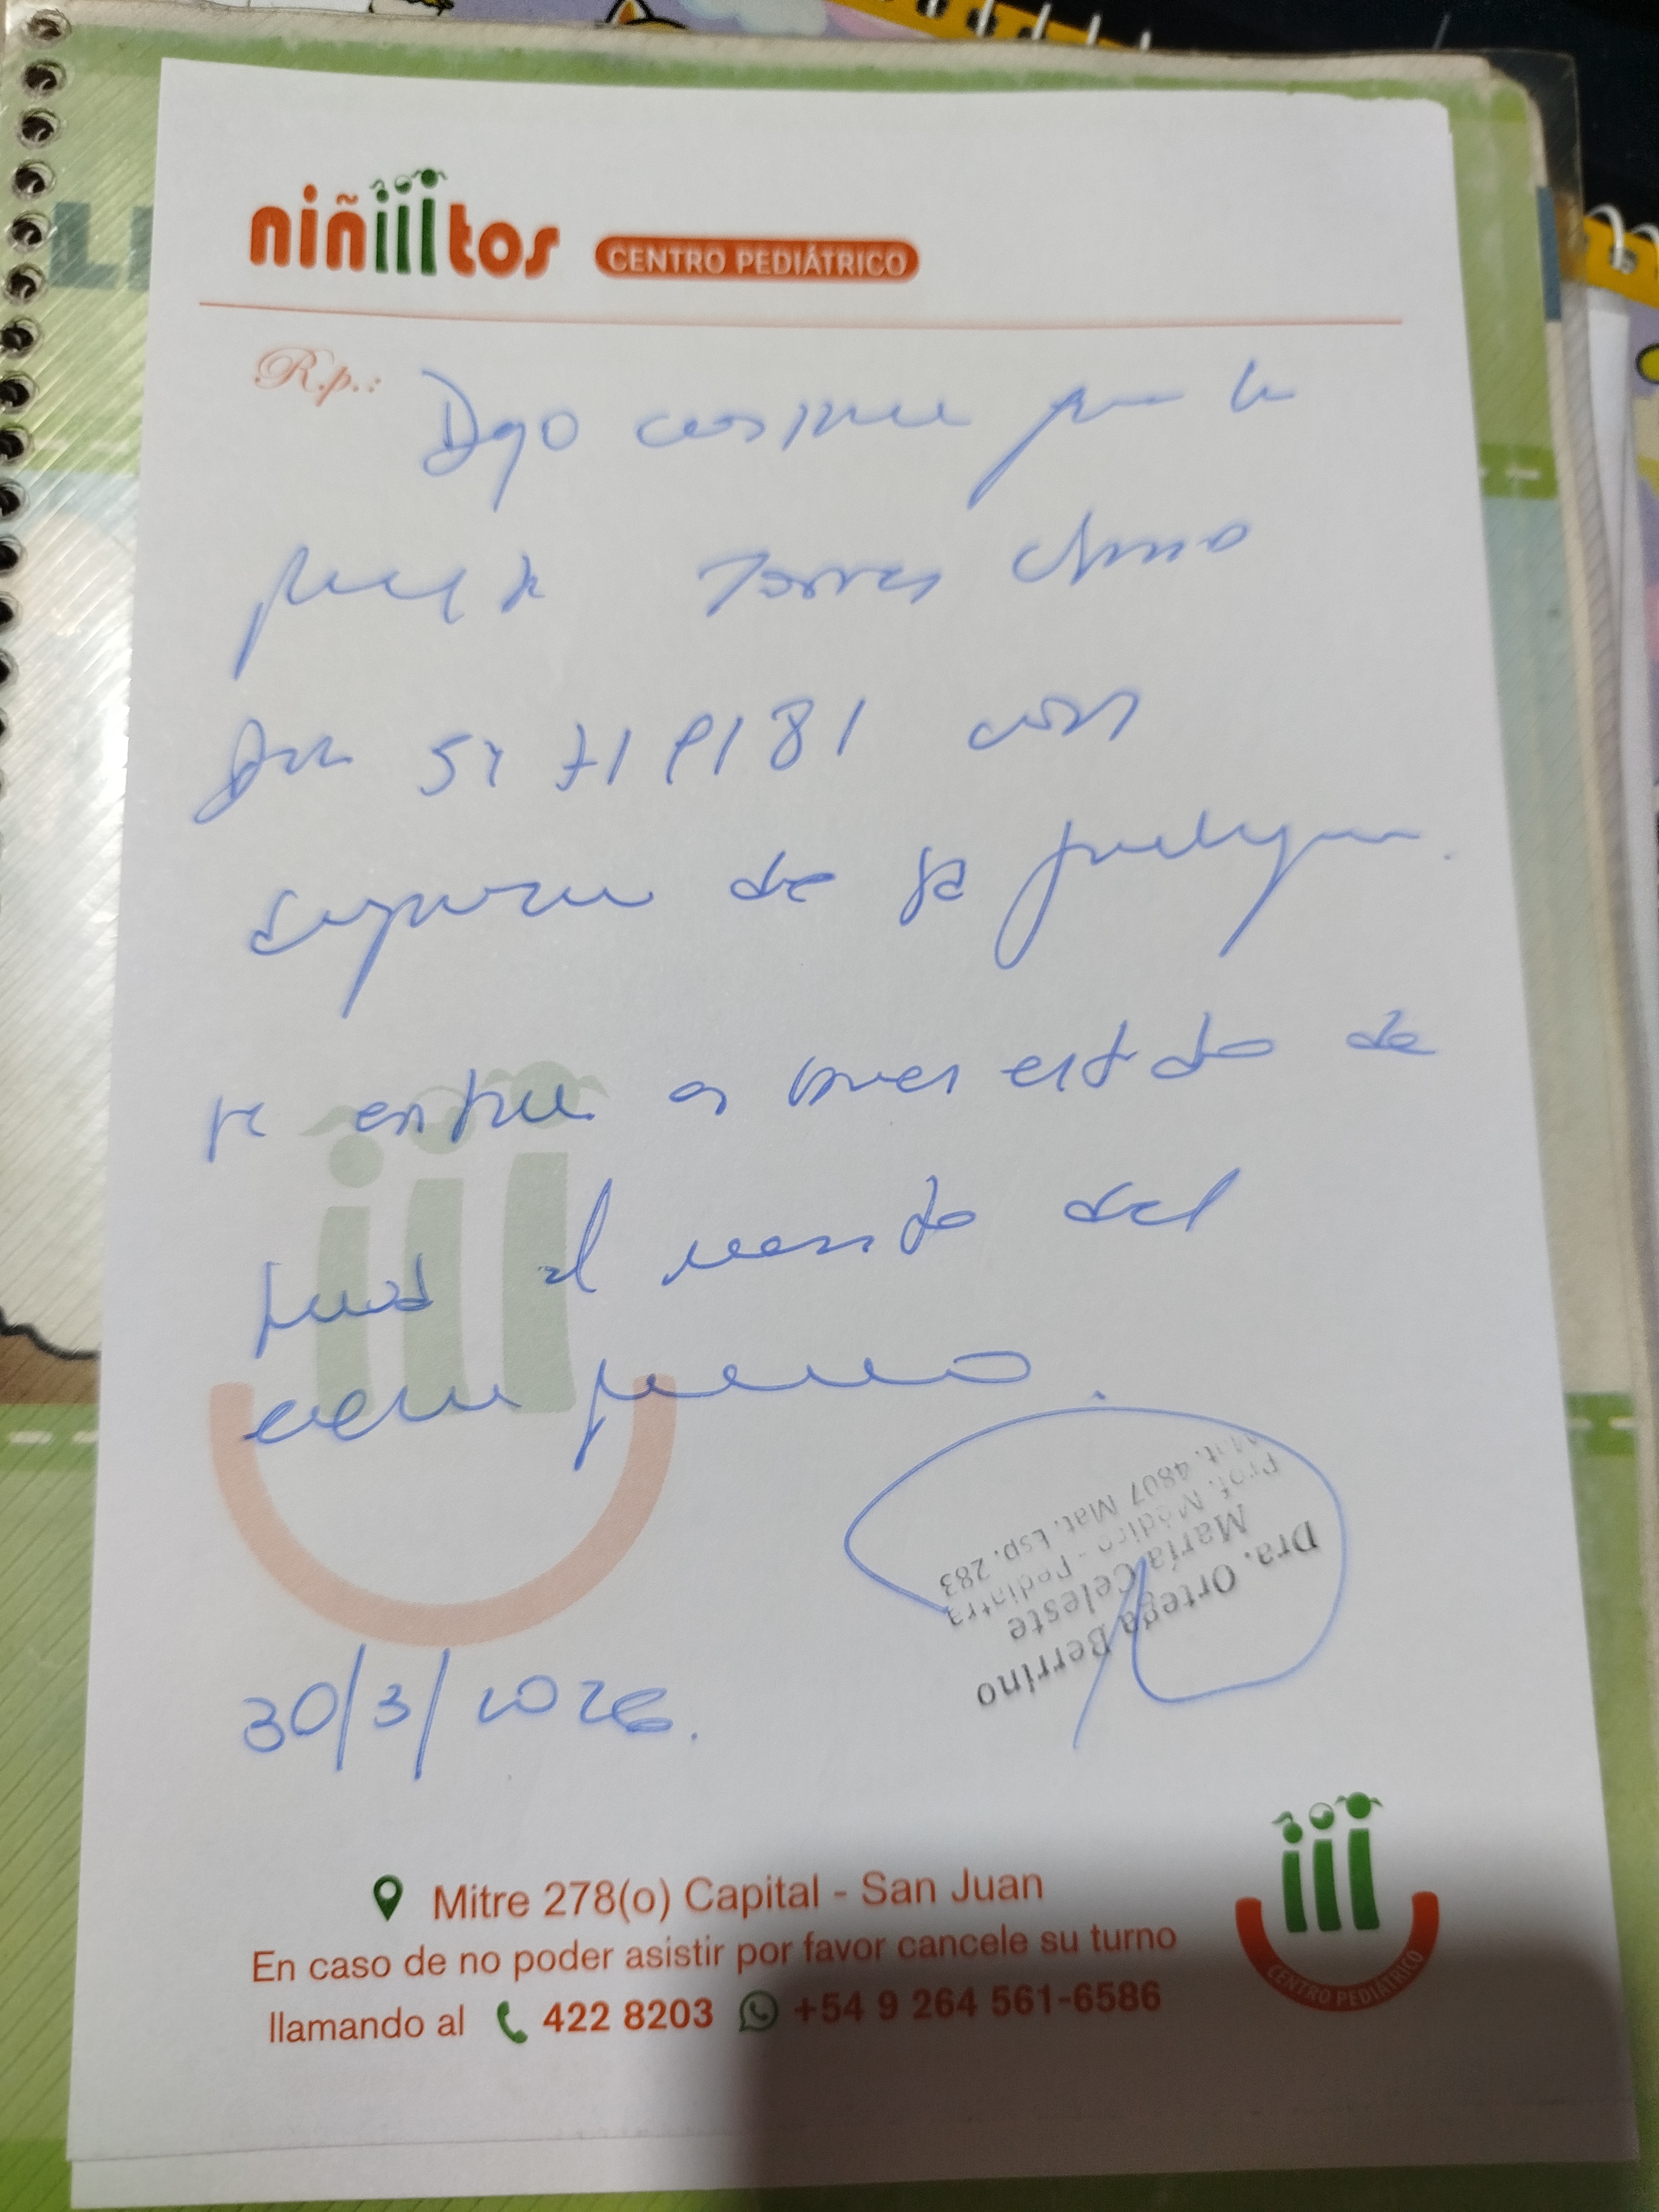 niñiiitos CENTRO PEDIÁTRICO
R.p.:
Dejo constancia que la
paciente Torres
Dni con
diagnóstico de
se encuentra en buen estado de
salud al momento del
examen
30/3/2026.
Dra. Ortega Berrino
María Celeste
Prof. Médico - Pediatra
Mat. 4807 Mat. Esp. 283
Mitre 278(o) Capital - San Juan
En caso de no poder asistir por favor cancele su turno
llamando al 422 8203 +54 9 264 561-6586
CENTRO PEDIÁTRICO